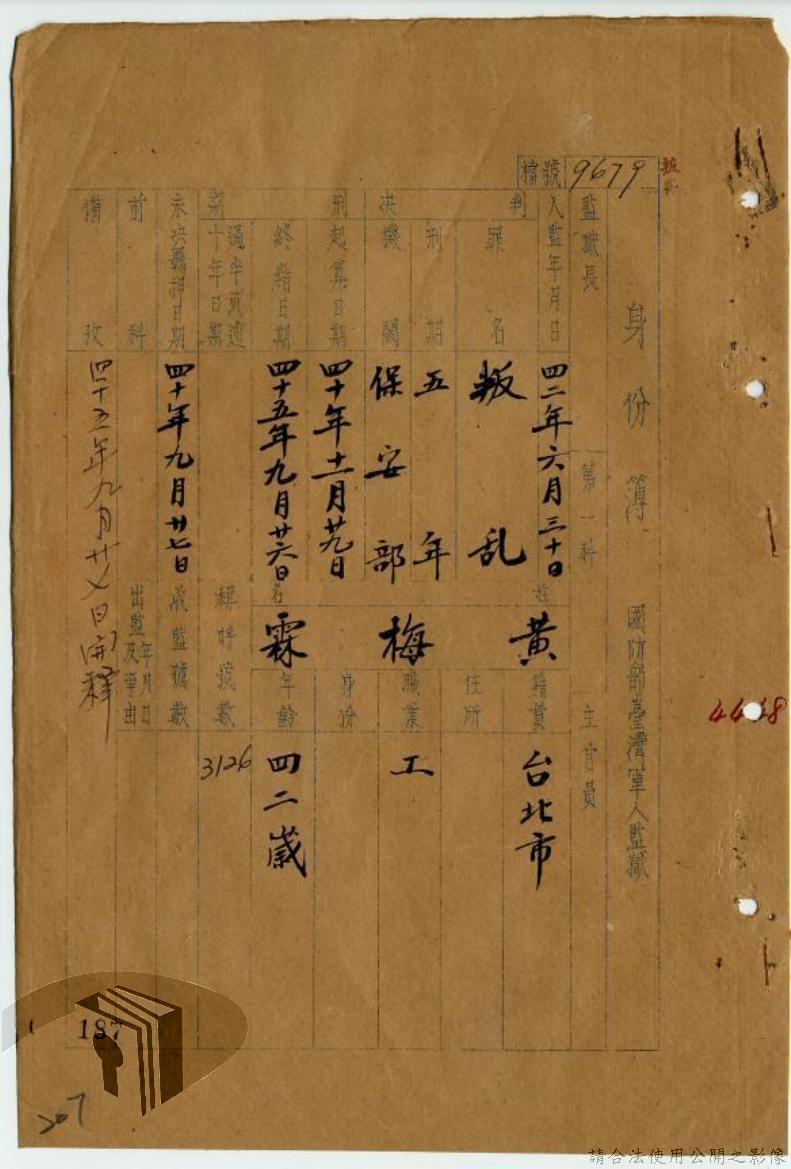 檔號 9679
身份簿 國防部臺灣軍人監獄
監獄長 第一科 主官員
入監年月日 四二年六月三十日
判決
罪名 叛乱
刑期 五年
機關 保安部
刑期
起算日期 四十年十一月廿九日
終結日期 四十五年九月廿六日
過半或逾十年日期
未決羈押日期 四十年九月廿七日
前科
備攷 四十五年九月廿七日開釋
姓名 黃梅霖
籍貫 台北市
住所
職業 工
身份
年齡 四二歲
褓呼號數 3126
收監號數
出監年月日及事由
4448
187
207
請合法使用公開之影像